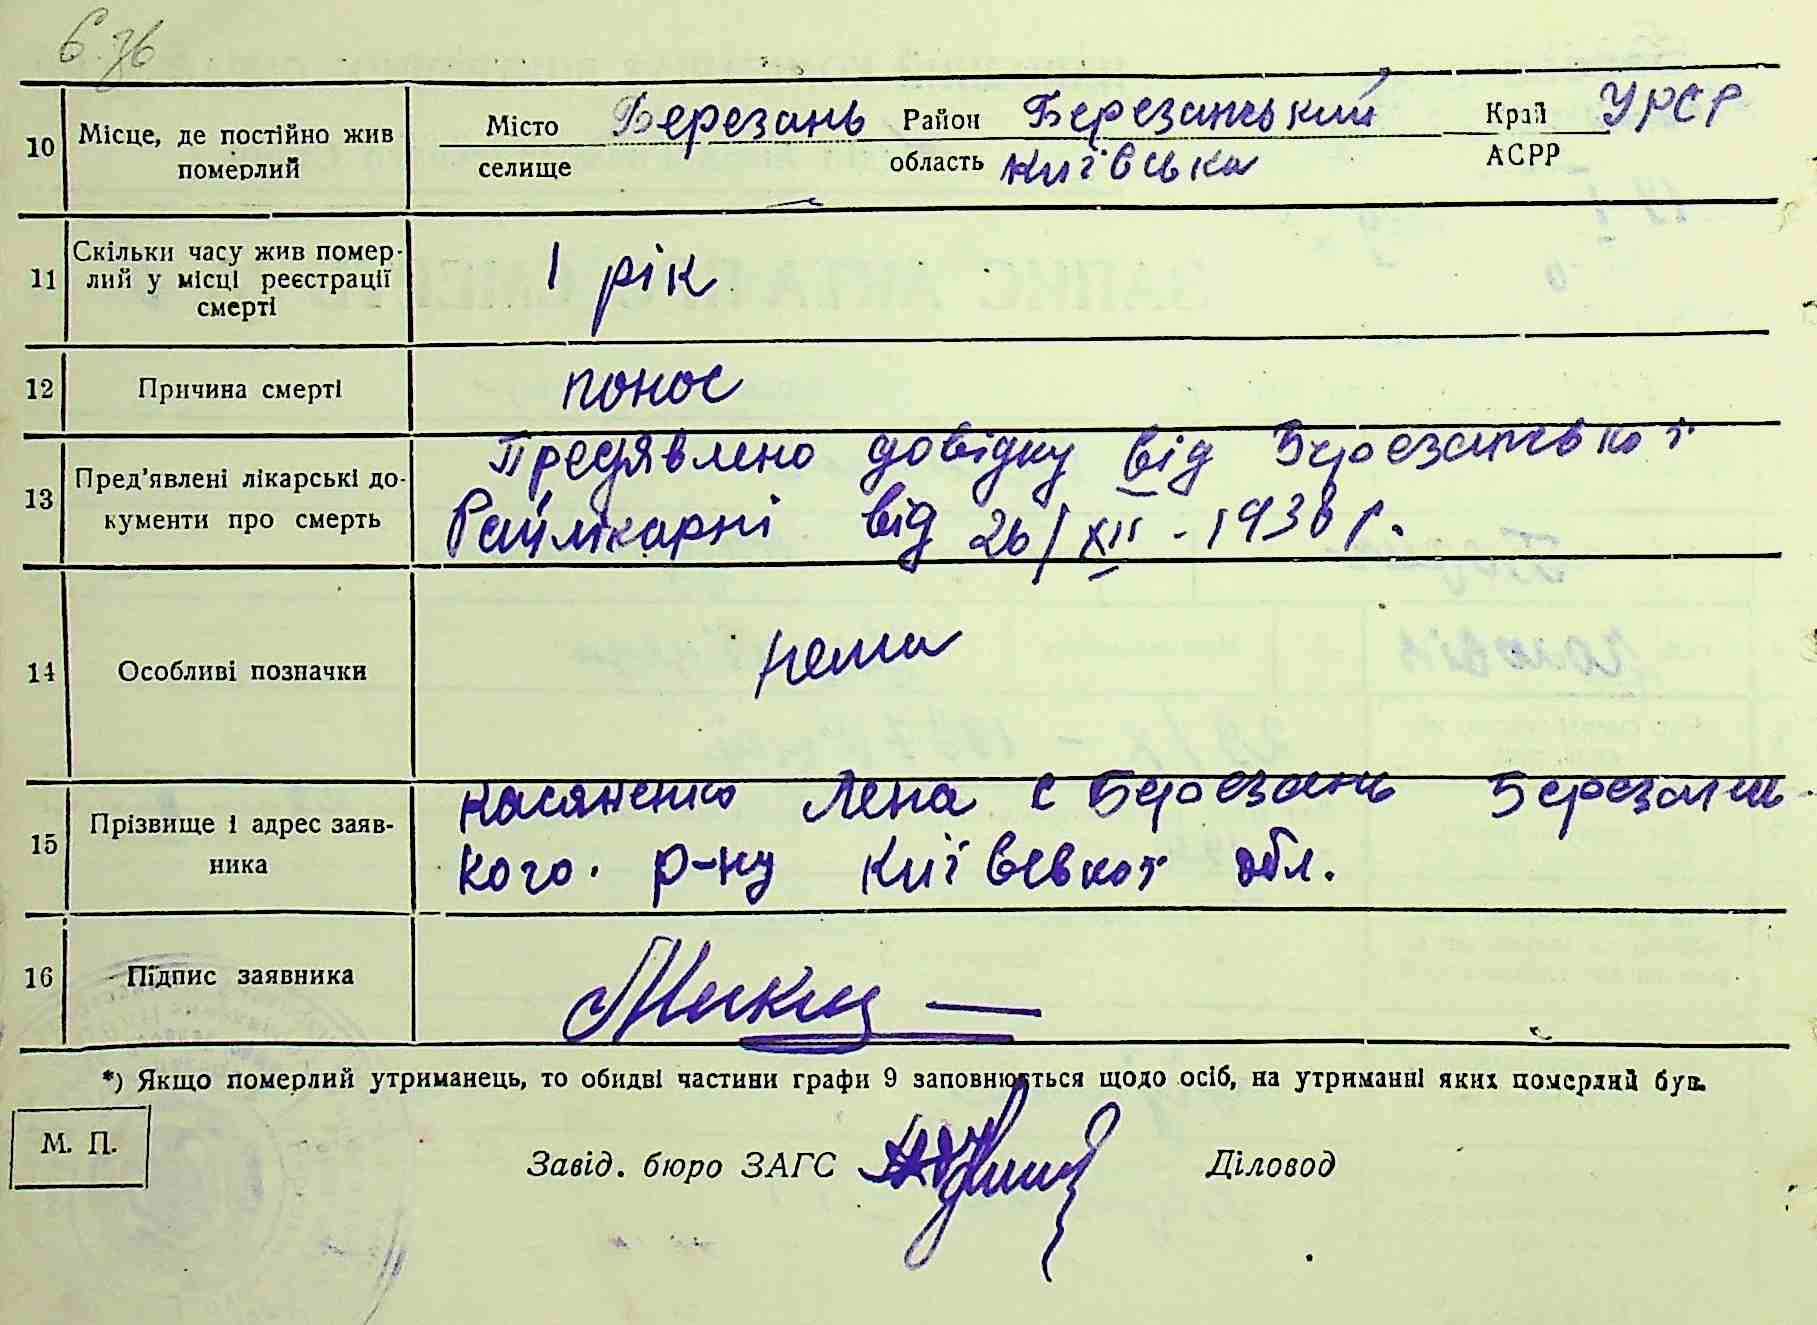 6.76
10 Місце, де постійно жив померлий Місто Березань Район Березанський Край УРСР
селище область Київська АСРР
11 Скільки часу жив помер-
лий у місці реєстрації
смерті
1 рік
12 Причина смерті понос
13 Пред'явлені лікарські до-
кументи про смерть
Предявлено довідку від Березанської
Райлікарні від 26/XII - 1938 р.
14 Особливі позначки нема
15 Прізвище і адрес заяв-
ника
Касяненко Лена с Березань Березансь-
кого. р-ну Київської обл.
16 Підпис заявника
*) Якщо померлий утриманець, то обидві частини графи 9 заповнюється щодо осіб, на утриманні яких померлий був.
М. П.
Завід. бюро ЗАГС Діловод